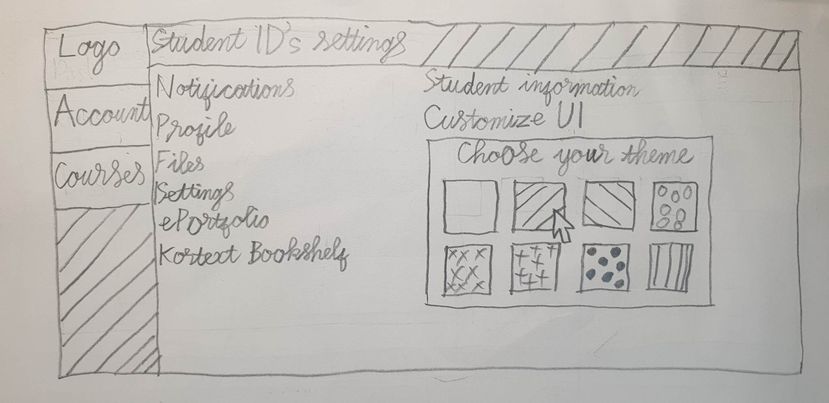 Logo
Student ID's settings
Account
Courses
Notifications
Profile
Files
Settings
ePortfolio
Kortext Bookshelf
Student information
Customize UI
Choose your theme